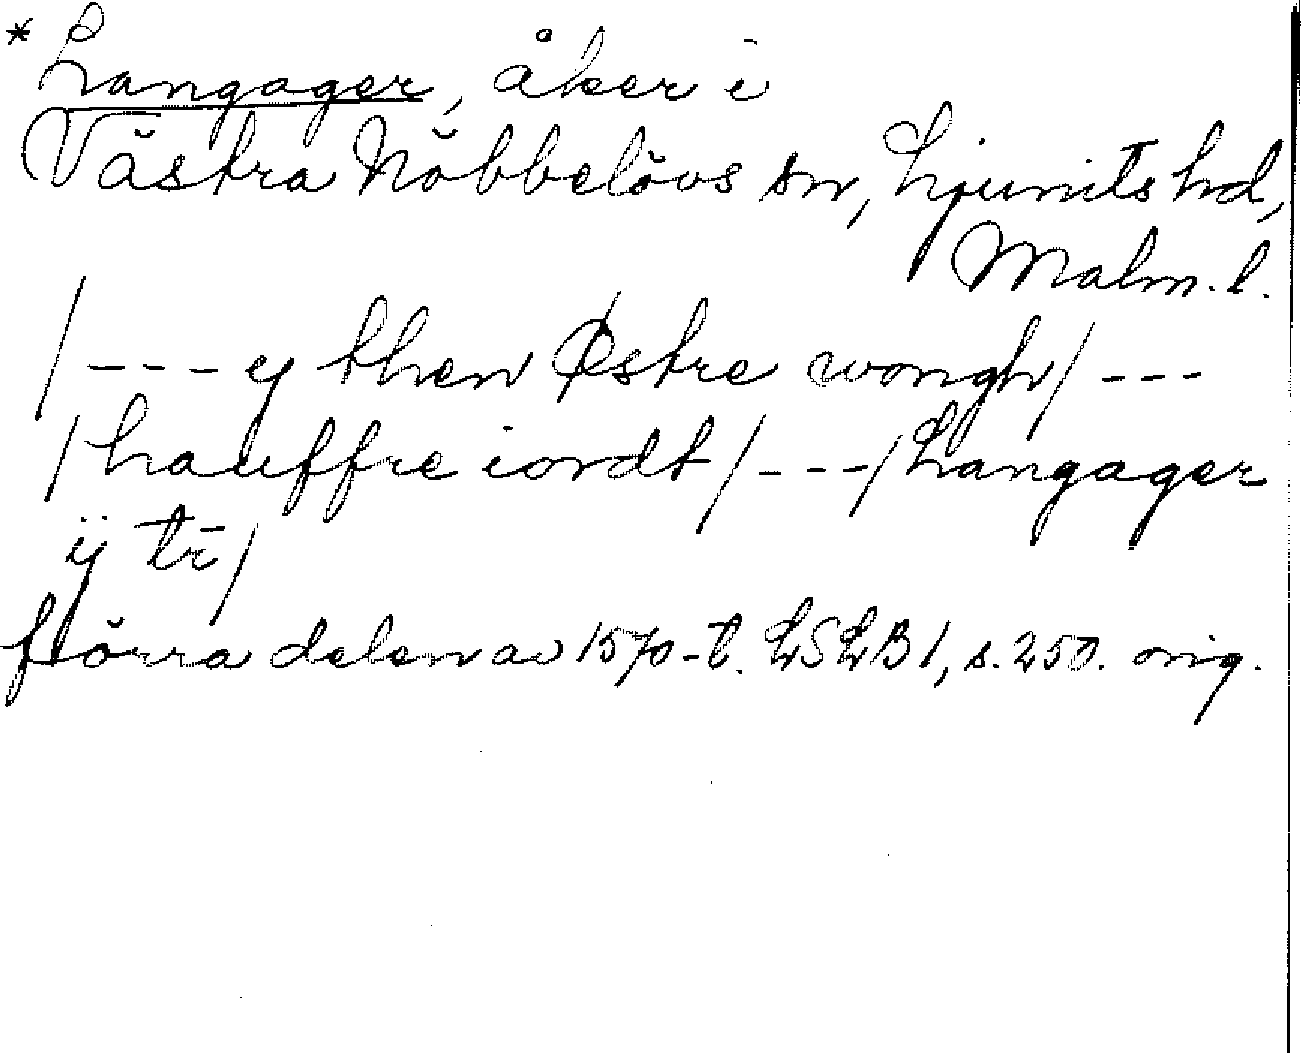 * Langager, åker i
Västra Nöbbelövs sn, Ljunits hd,
Malm. l.
/---y then Østre wongh/---
/hauffre iordt/---/Langager
ÿ tr̄/
förra delen av 1570-t. LSLB 1, s. 250. orig.